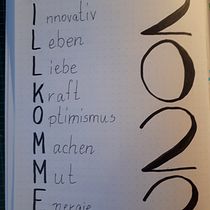 Innovativ
Leben
Liebe
Kraft
Optimismus
Machen
Mut
Energie
2020